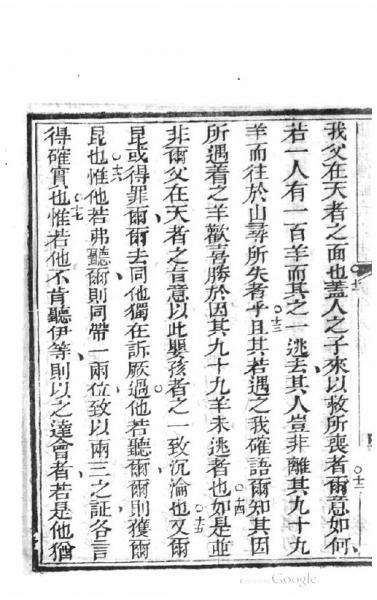 我父在天者之面也蓋人之子來以救所喪者爾意如何
若一人有一百羊而其之一逃去其人豈非離其九十九
羊而往於山尋所失者乎且其若遇之我確語爾知其因
所遇着之羊歡喜勝於因其九十九羊未逃者也如是並
非爾父在天者之旨意以此嬰孩者之一致沉淪也又爾
昆或得罪爾爾去同他獨在訴厥過他若聽爾爾則獲爾
昆也惟他若弗聽爾則同帶一兩位致以兩三之証各言
得確實也惟若他不肯聽伊等則以之達會者若是他猶
十二
十三
十四
十五
十六
十七
Google